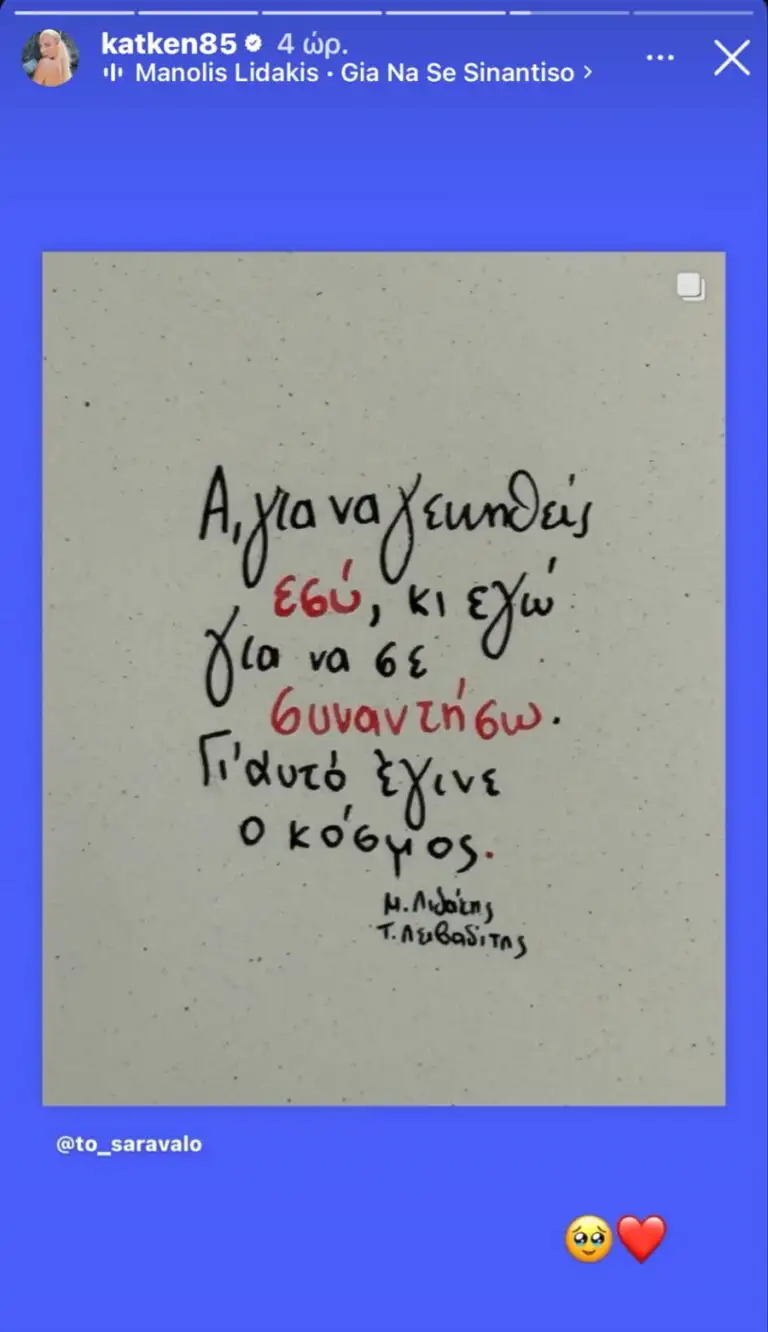 katken85 4 ώρ.
Manolis Lidakis • Gia Na Se Sinantiso >
Α, για να γεννηθείς
εσύ, κι εγώ
για να σε
συναντήσω.
Γι' αυτό έγινε
ο κόσμος.
Μ. Λιδάκης
Τ. Λειβαδίτης
@to_saravalo